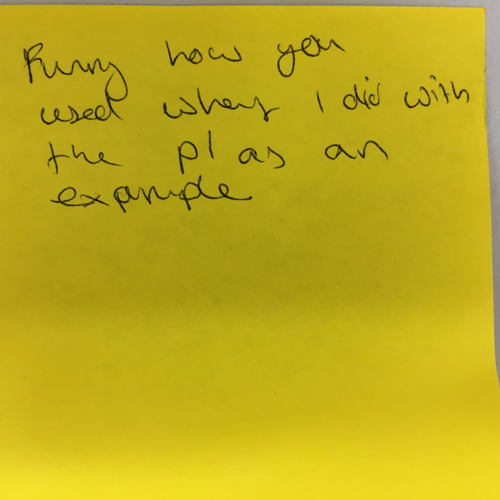 Funny how you
used what I did with
the pl as an
example